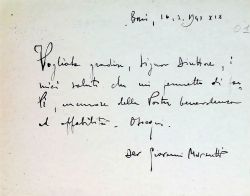 Bari, 16.3.1941 XIX
Vogliate gradire, Signor Direttore, i
miei saluti che mi permetto di far
Vi, memore della Vostra benevolenza
ed affabilità. Ossequi.
Dev Giovanni